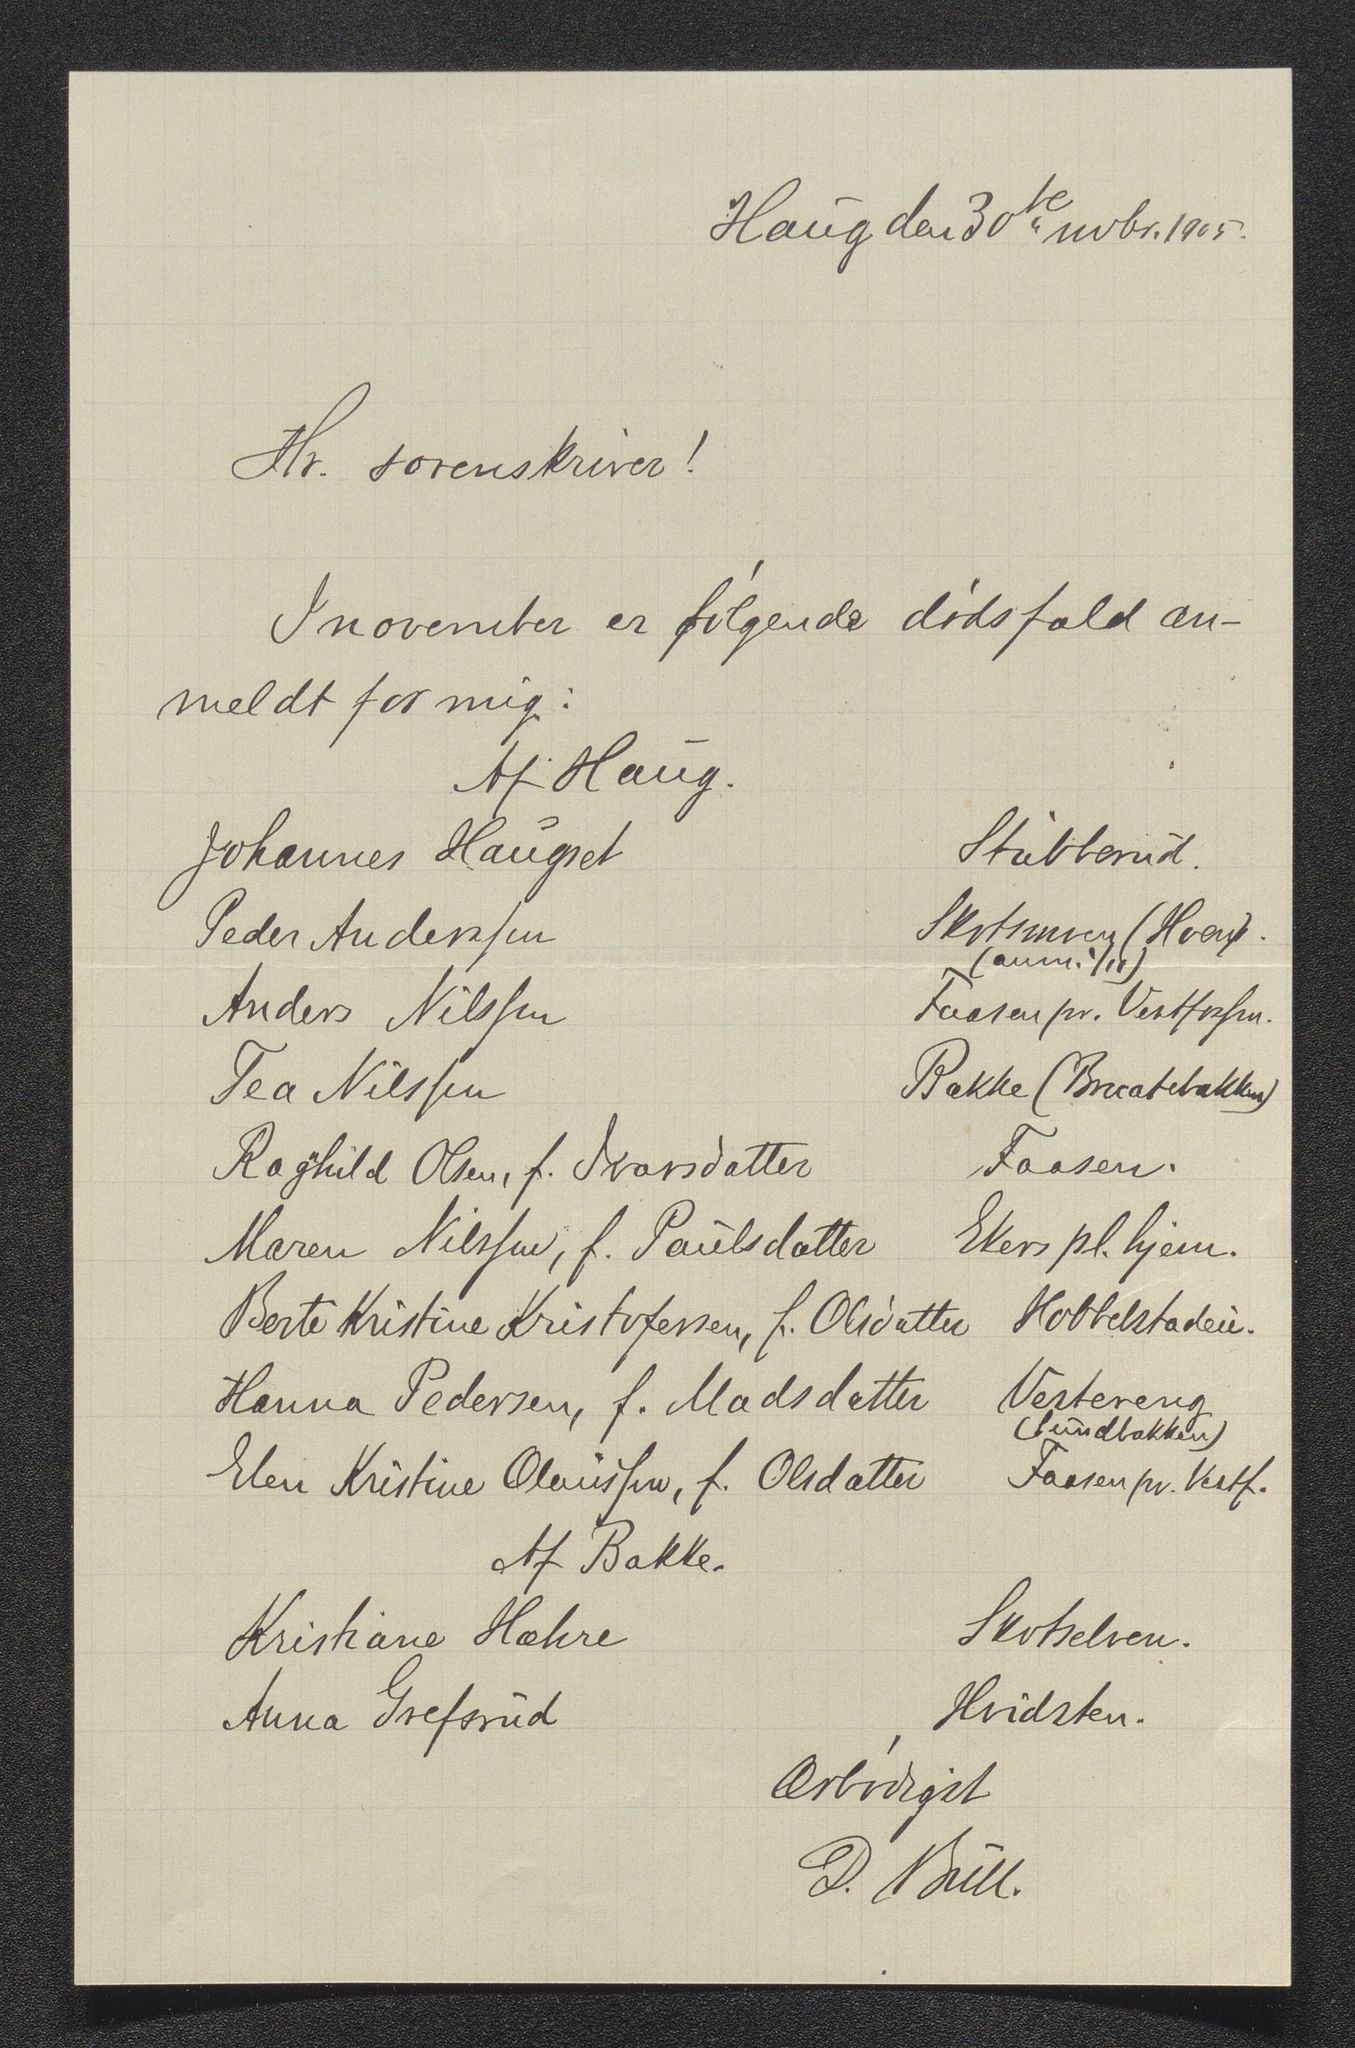 Haug den 30te novbr. 1905.
Hr. sorenskriver!
I november er følgende dødsfald an-
meldt for mig:
Af Haug.
Johannes Haugset Stubberud.
Peder Anderssen Skotsmoen (Hoen).
(anm. 1/11)
Anders Nilssen Faasen pr. Vestfossen.
Tea Nilssen Bakke (Braatebakken)
Raghild Olsen, f. Ivarsdatter Faasen.
Maren Nilssen, f. Paulsdatter Ekers pl. hjem.
Berte Kristine Kristofersen, f. Olsdatter Hobbelstadeie.
Hanna Pedersen, f. Madsdatter Vestereng
(Sundbakken)
Elen Kristine Olaussen, f. Olsdatter Faasen pr. Vestf.
Af Bakke.
Kristiane Hæhre Skotselven.
Anna Grefsrud Hvidsten.
Ærbødigst
D. Bull.